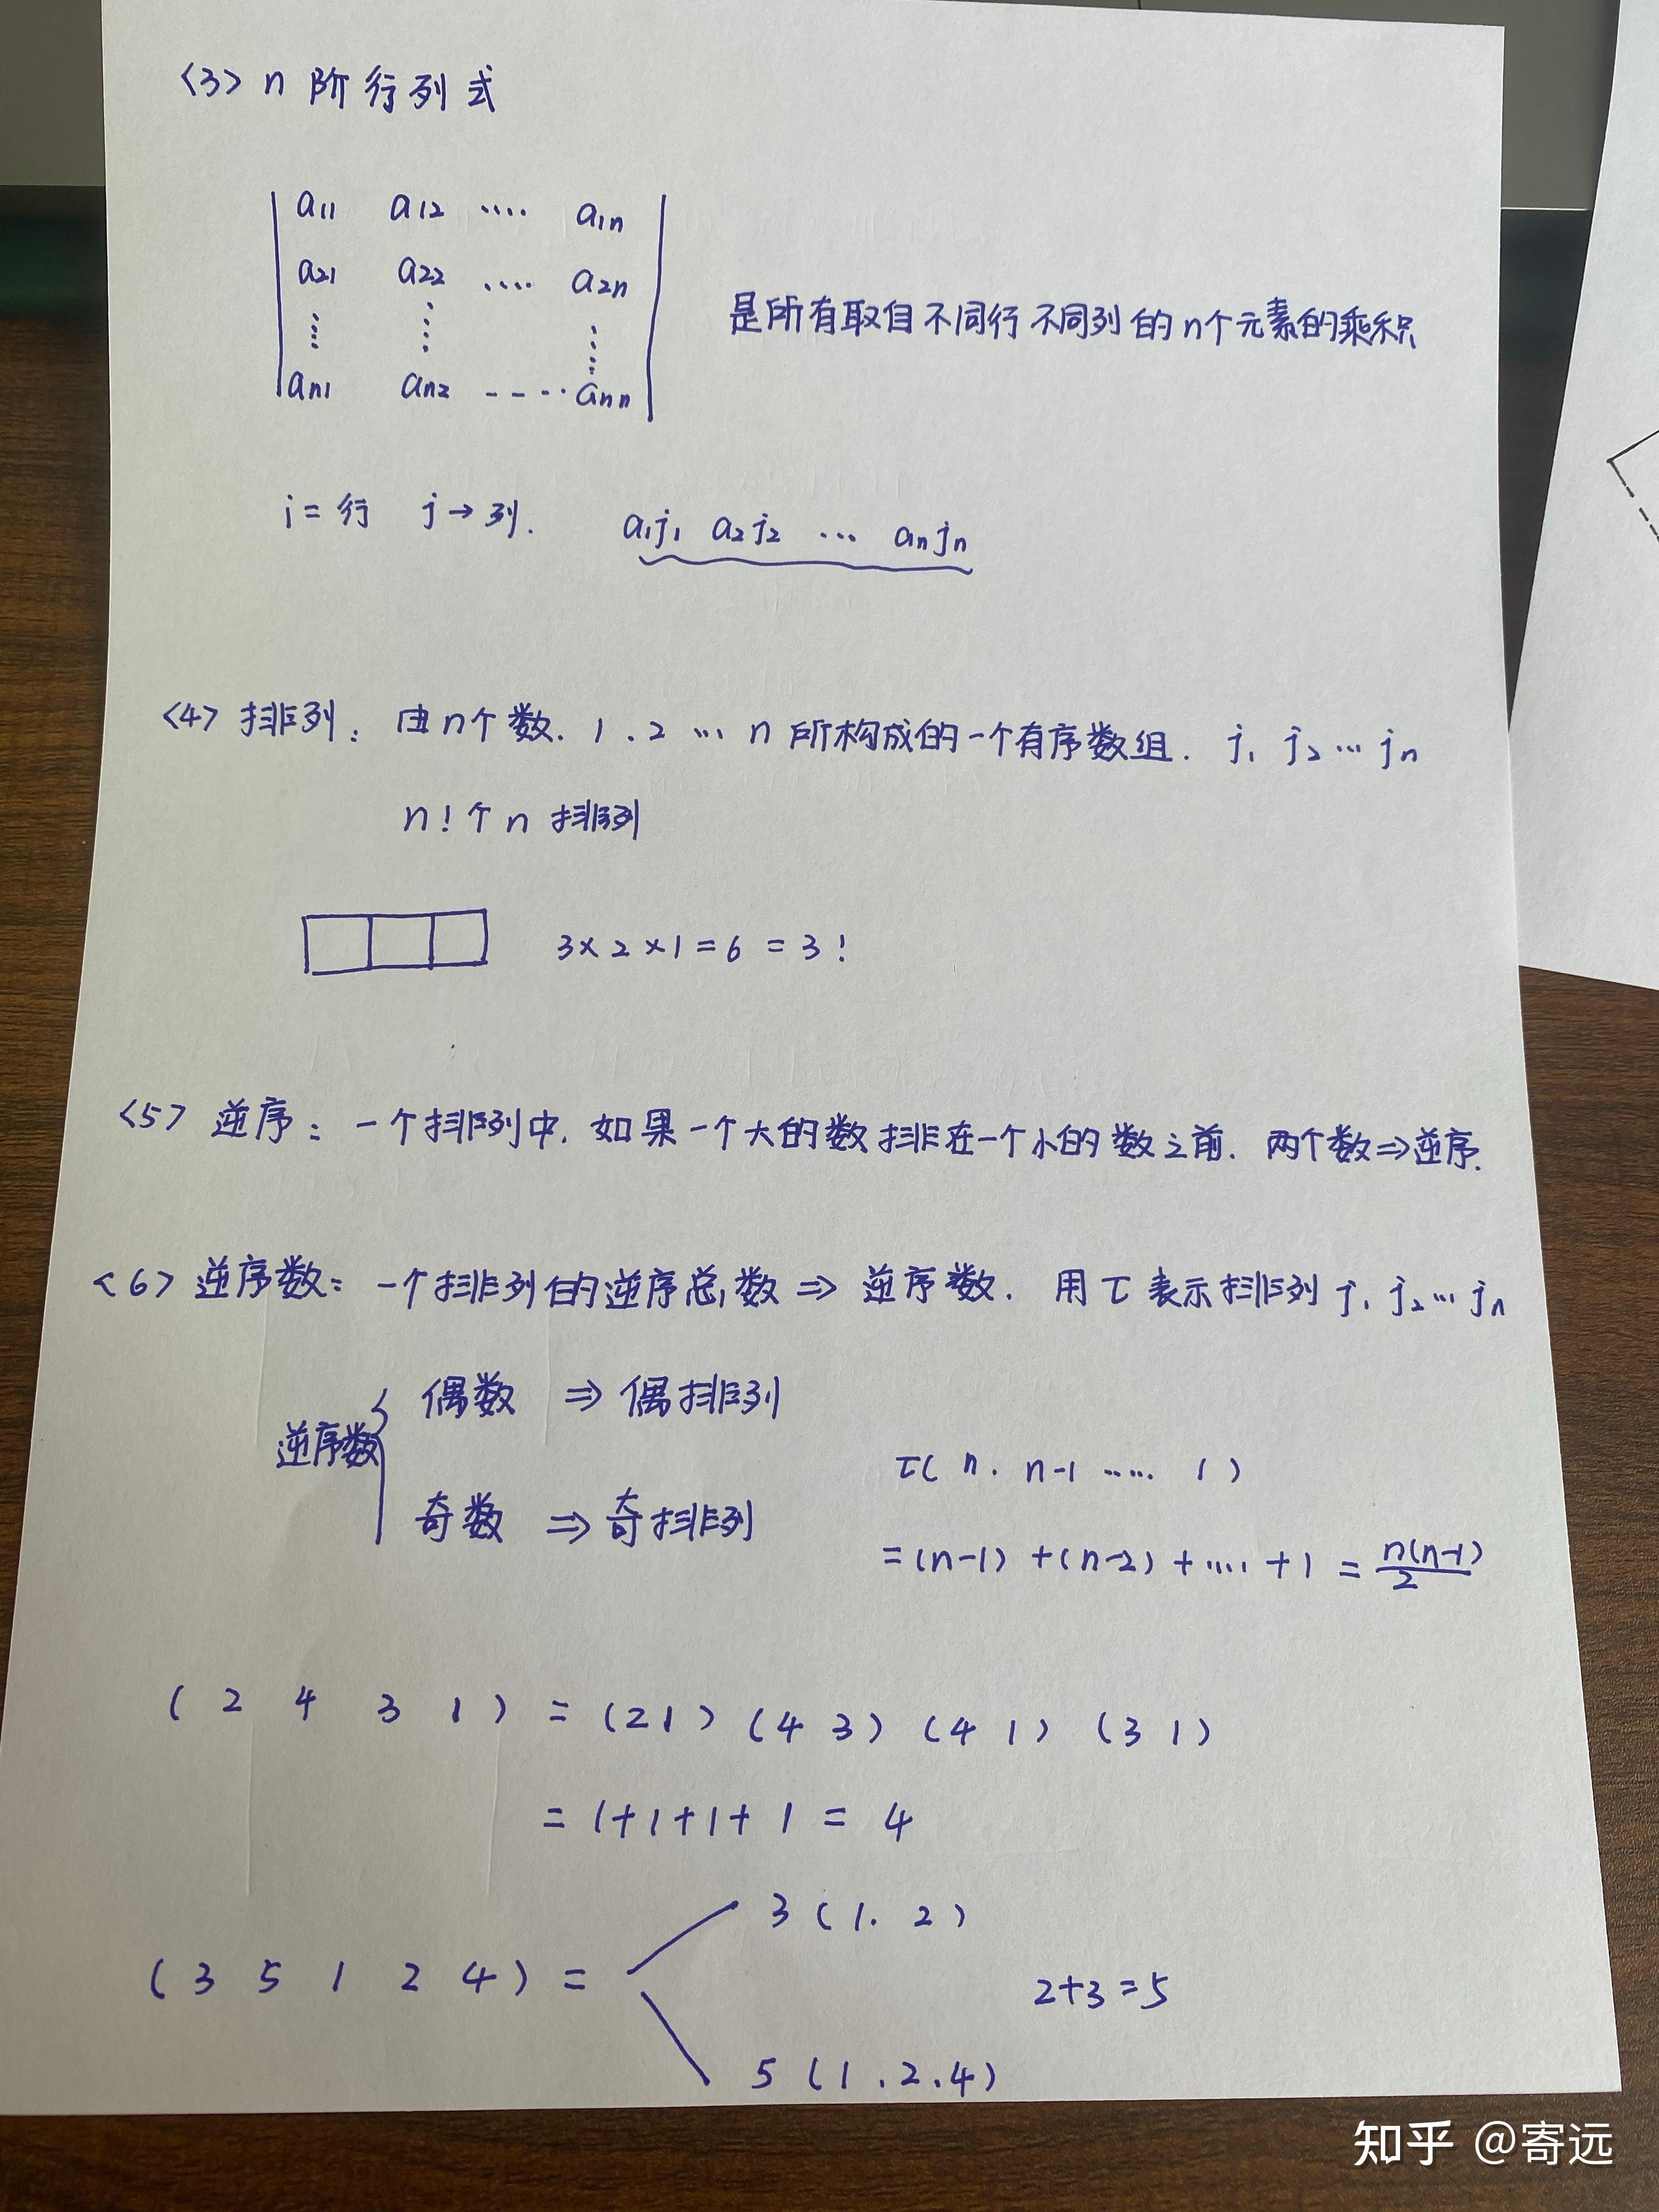 <3> n 阶行列式
a11 a12 .... a1n
a21 a22 .... a2n
an1 an2 ----.. ann
是所有取自不同行不同列的n个元素的乘积
i=行 j→列. a1j1 a2j2 ... anjn
<4> 排列: 由n个数. 1、2 ... n 所构成的一个有序数组. j1 j2 ... jn
n!个n 排列
3×2×1=6=3!
<5> 逆序: 一个排列中, 如果一个大的数排在一个小的数之前. 两个数⇒逆序.
<6> 逆序数: 一个排列的逆序总数⇒逆序数. 用τ表示排列 j1 j2 ... jn
逆序数 { 偶数 ⇒ 偶排列
奇数 ⇒ 奇排列
τ( n. n-1 ..... 1 )
=(n-1)+(n-2)+....+1 = n(n-1)/2
( 2 4 3 1 ) = (21) (4 3) (4 1) (3 1)
= 1+1+1+1 = 4
3 (1. 2)
( 3 5 1 2 4 ) =
2+3=5
5 (1.2.4)
知乎 @寄远